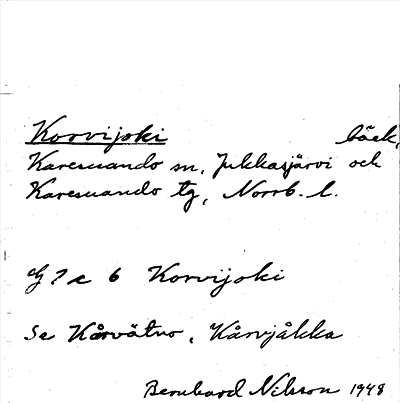 Korvijoki bäck,
Karesuando sn, Jukkasjärvi och
Karesuando tg, Norrb. l.
Gf 7 c 6 Korvijoki
Se Kårvätno, Kårvjåkka
Bernhard Nilsson 1948